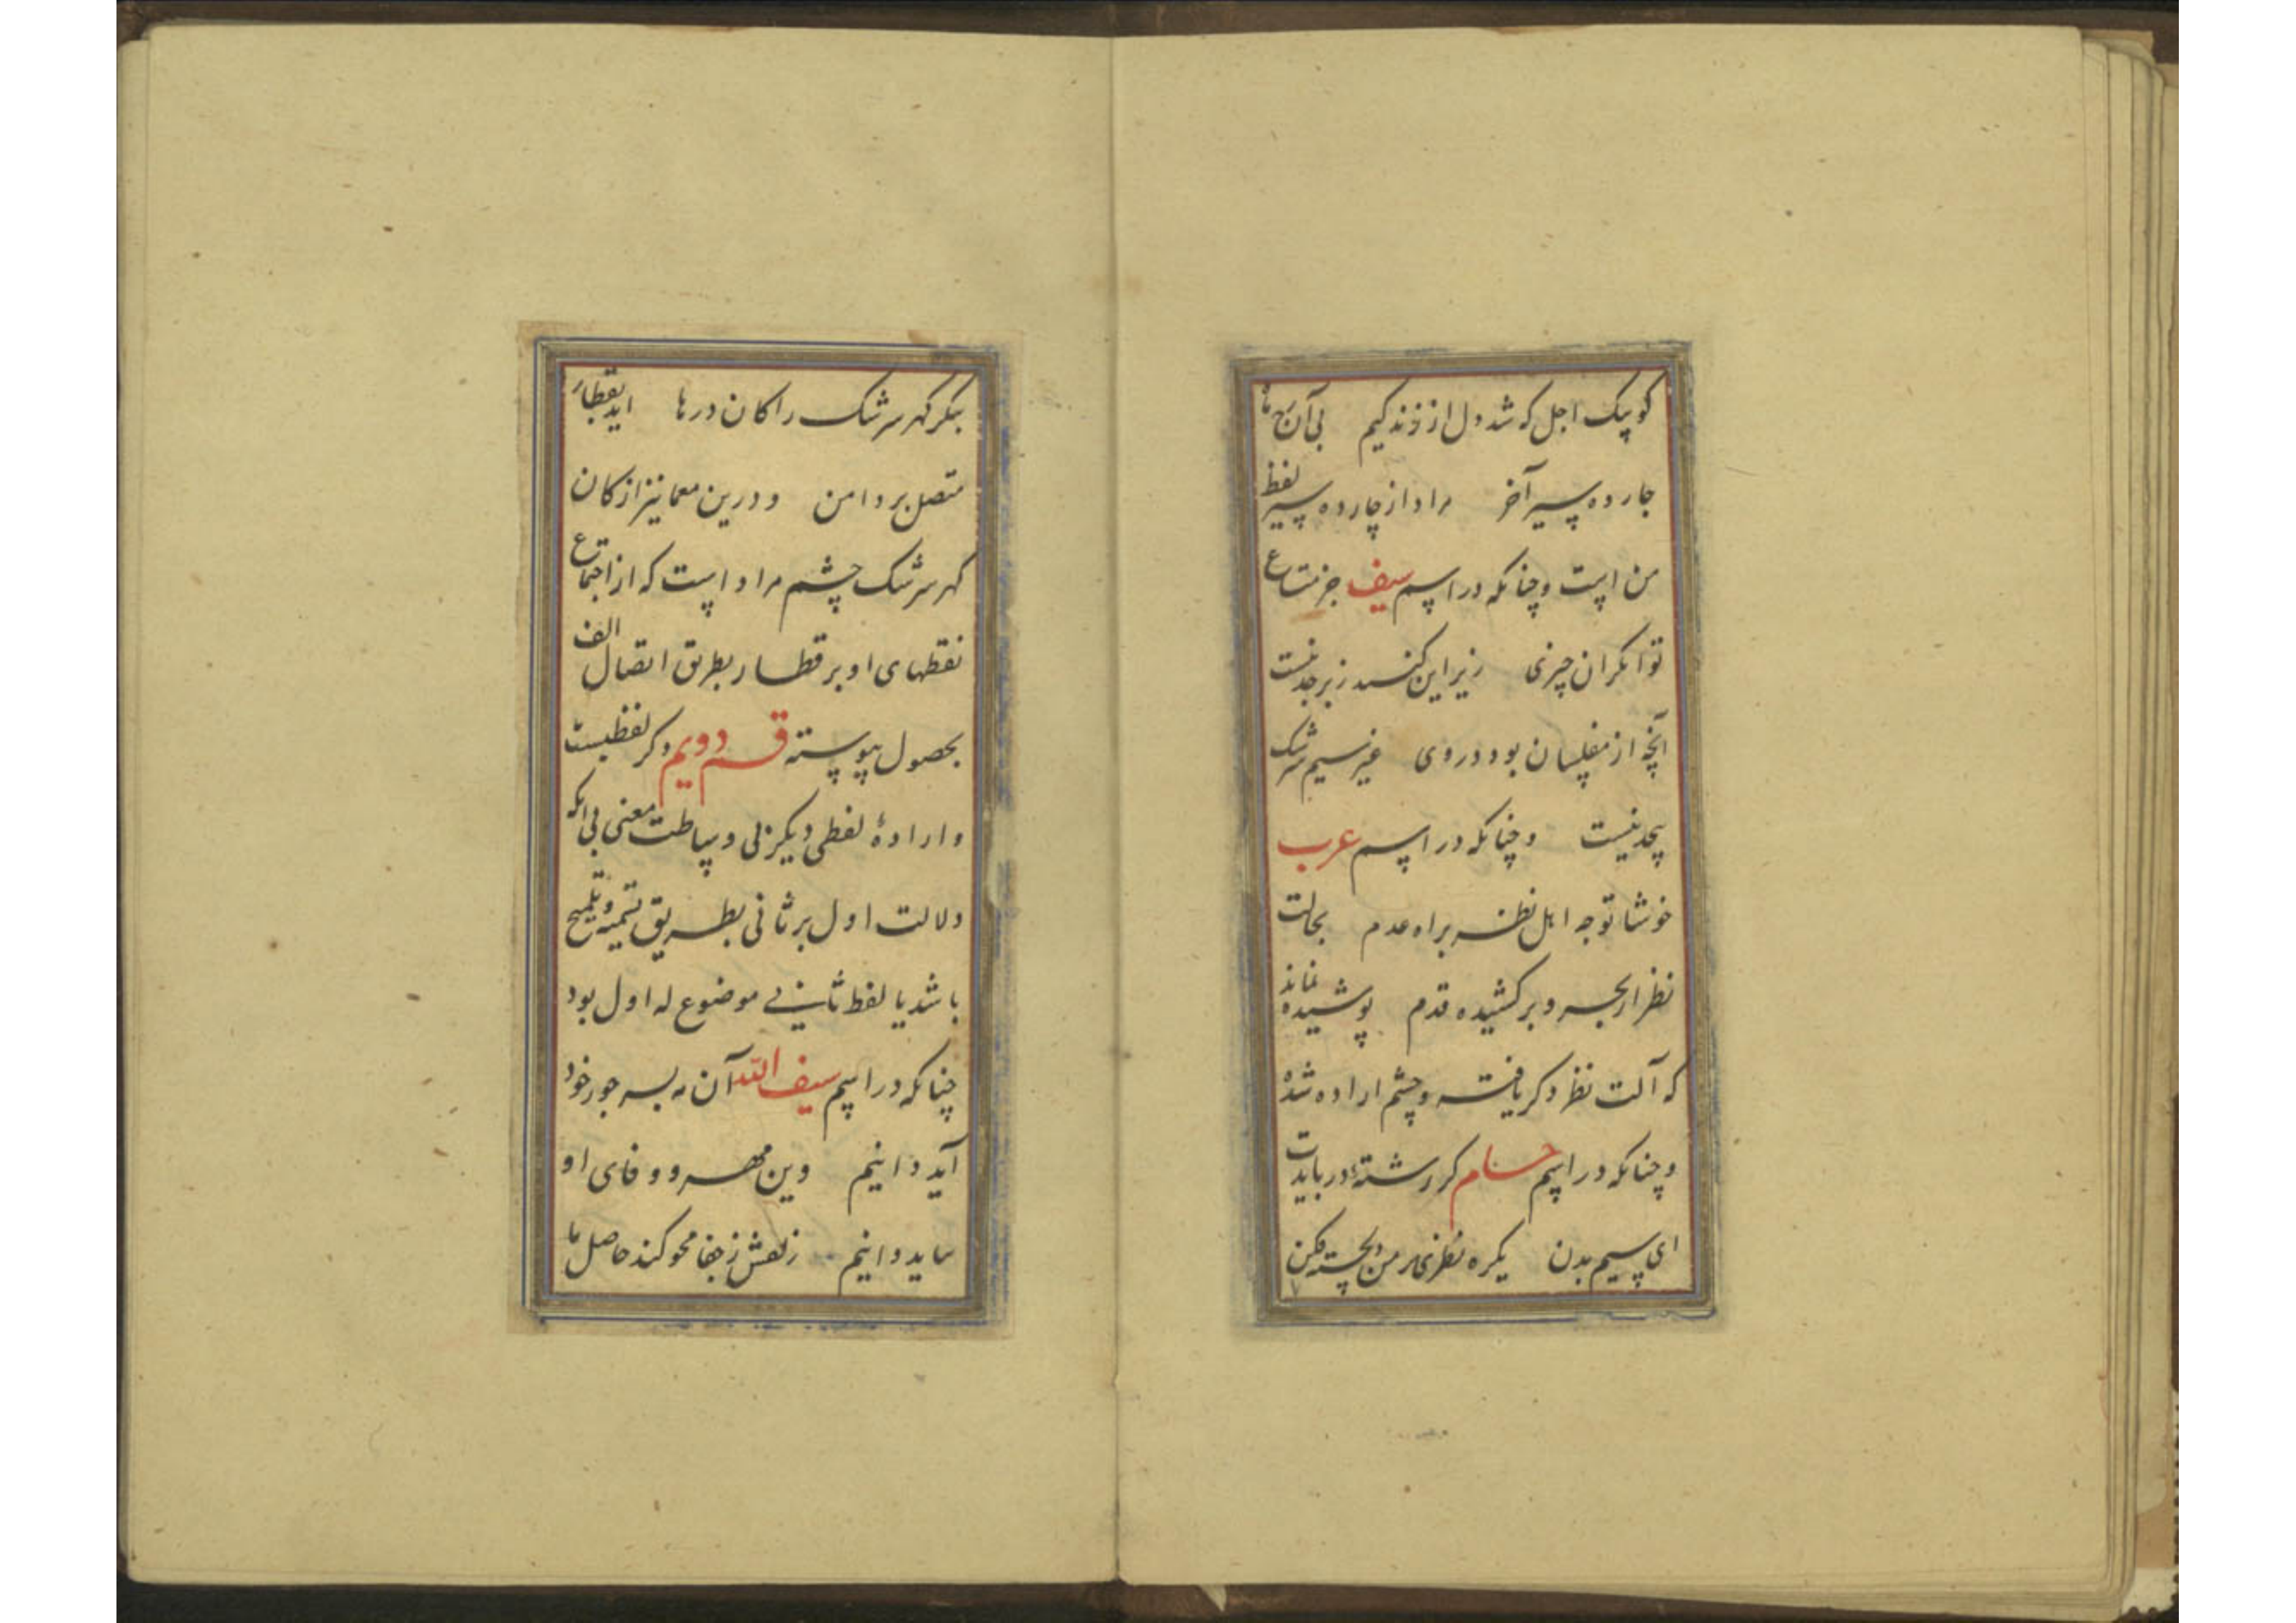 کو پیک اجل که شد دل از زندگیم بی آن
چارده پسیر آخر مراد از چارده پسیر لفظ
من است و چنانکه در اسم سیف جز متاع
توانکران چیزی زیر این کنبد زبرجد نیست
آنچه از مفلسان بود در وی غیر سیم سرشک
بیحد نیست و چنانکه در اسم عرب
خوشا توجه اهل نظر براه عدم بحالت
نظر ار بحر و بر کشیده قدم پوشیده نماند
که آلت نظر ذکر یافته و چشم اراده شده
و چنانکه در اسم حسام کر رشته در بایدت
ای سیم بدن یکره نظری بر من دلخسته فکن
بنکر کهر سرشک را کان درها آید بقطار
متصل بر دامن و درین معما نیز از کان
کهر سرشک چشم مراد است که از اجتماع
نقطهای او بر قطار بطریق اتصال الف
بحصول پیوسته قسم دویم ذکر لفظیست
و ارادهٔ لفظی دیکر بی وساطت معنی بی آنکه
دلالت اول بر ثانی بطریق تسمیه و تلمیح
باشد یا لفظ ثانی موضوع له اول بود
چنانکه در اسم سیف الله آن مه بسر جور خود
آید دانیم وین مهر و وفای او
نماید دانیم زلفش ز جفا محو کند حاصل ما